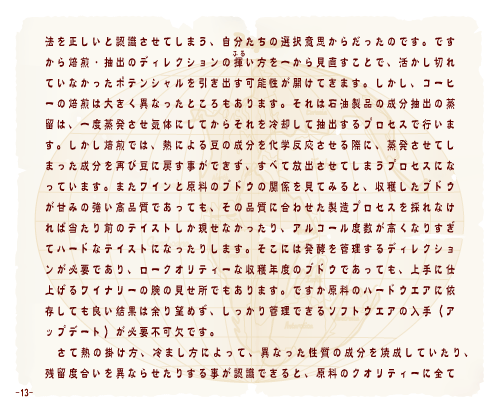 法を正しいと認識させてしまう、自分たちの選択意思からだったのです。です
から焙煎・抽出のディレクションの揮い方を一から見直すことで、活かし切れ
ふる
ていなかったポテンシャルを引き出す可能性が開けてきます。しかし、コーヒ
ーの焙煎は大きく異なったところもあります。それは石油製品の成分抽出の蒸
留は、一度蒸発させ気体にしてからそれを冷却して抽出するプロセスで行いま
す。しかし焙煎では、熱による豆の成分を化学反応させる際に、蒸発させてし
まった成分を再び豆に戻す事ができず、すべて放出させてしまうプロセスにな
っています。またワインと原料のブドウの関係を見てみると、収穫したブドウ
が甘みの強い高品質であっても、その品質に合わせた製造プロセスを採れなけ
れば当たり前のテイストしか現せなかったり、アルコール度数が高くなりすぎ
てハードなテイストになったりします。そこには発酵を管理するディレクショ
ンが必要であり、ロークオリティーな収穫年度のブドウであっても、上手に仕
上げるワイナリーの腕の見せ所でもあります。ですか原料のハードウエアに依
存しても良い結果は余り望めず、しっかり管理できるソフトウエアの入手（ア
ップデート）が必要不可欠です。
さて熱の掛け方、冷まし方によって、異なった性質の成分を焼成していたり、
残留度合いを異ならせたりする事が認識できると、原料のクオリティーに全て
-13-